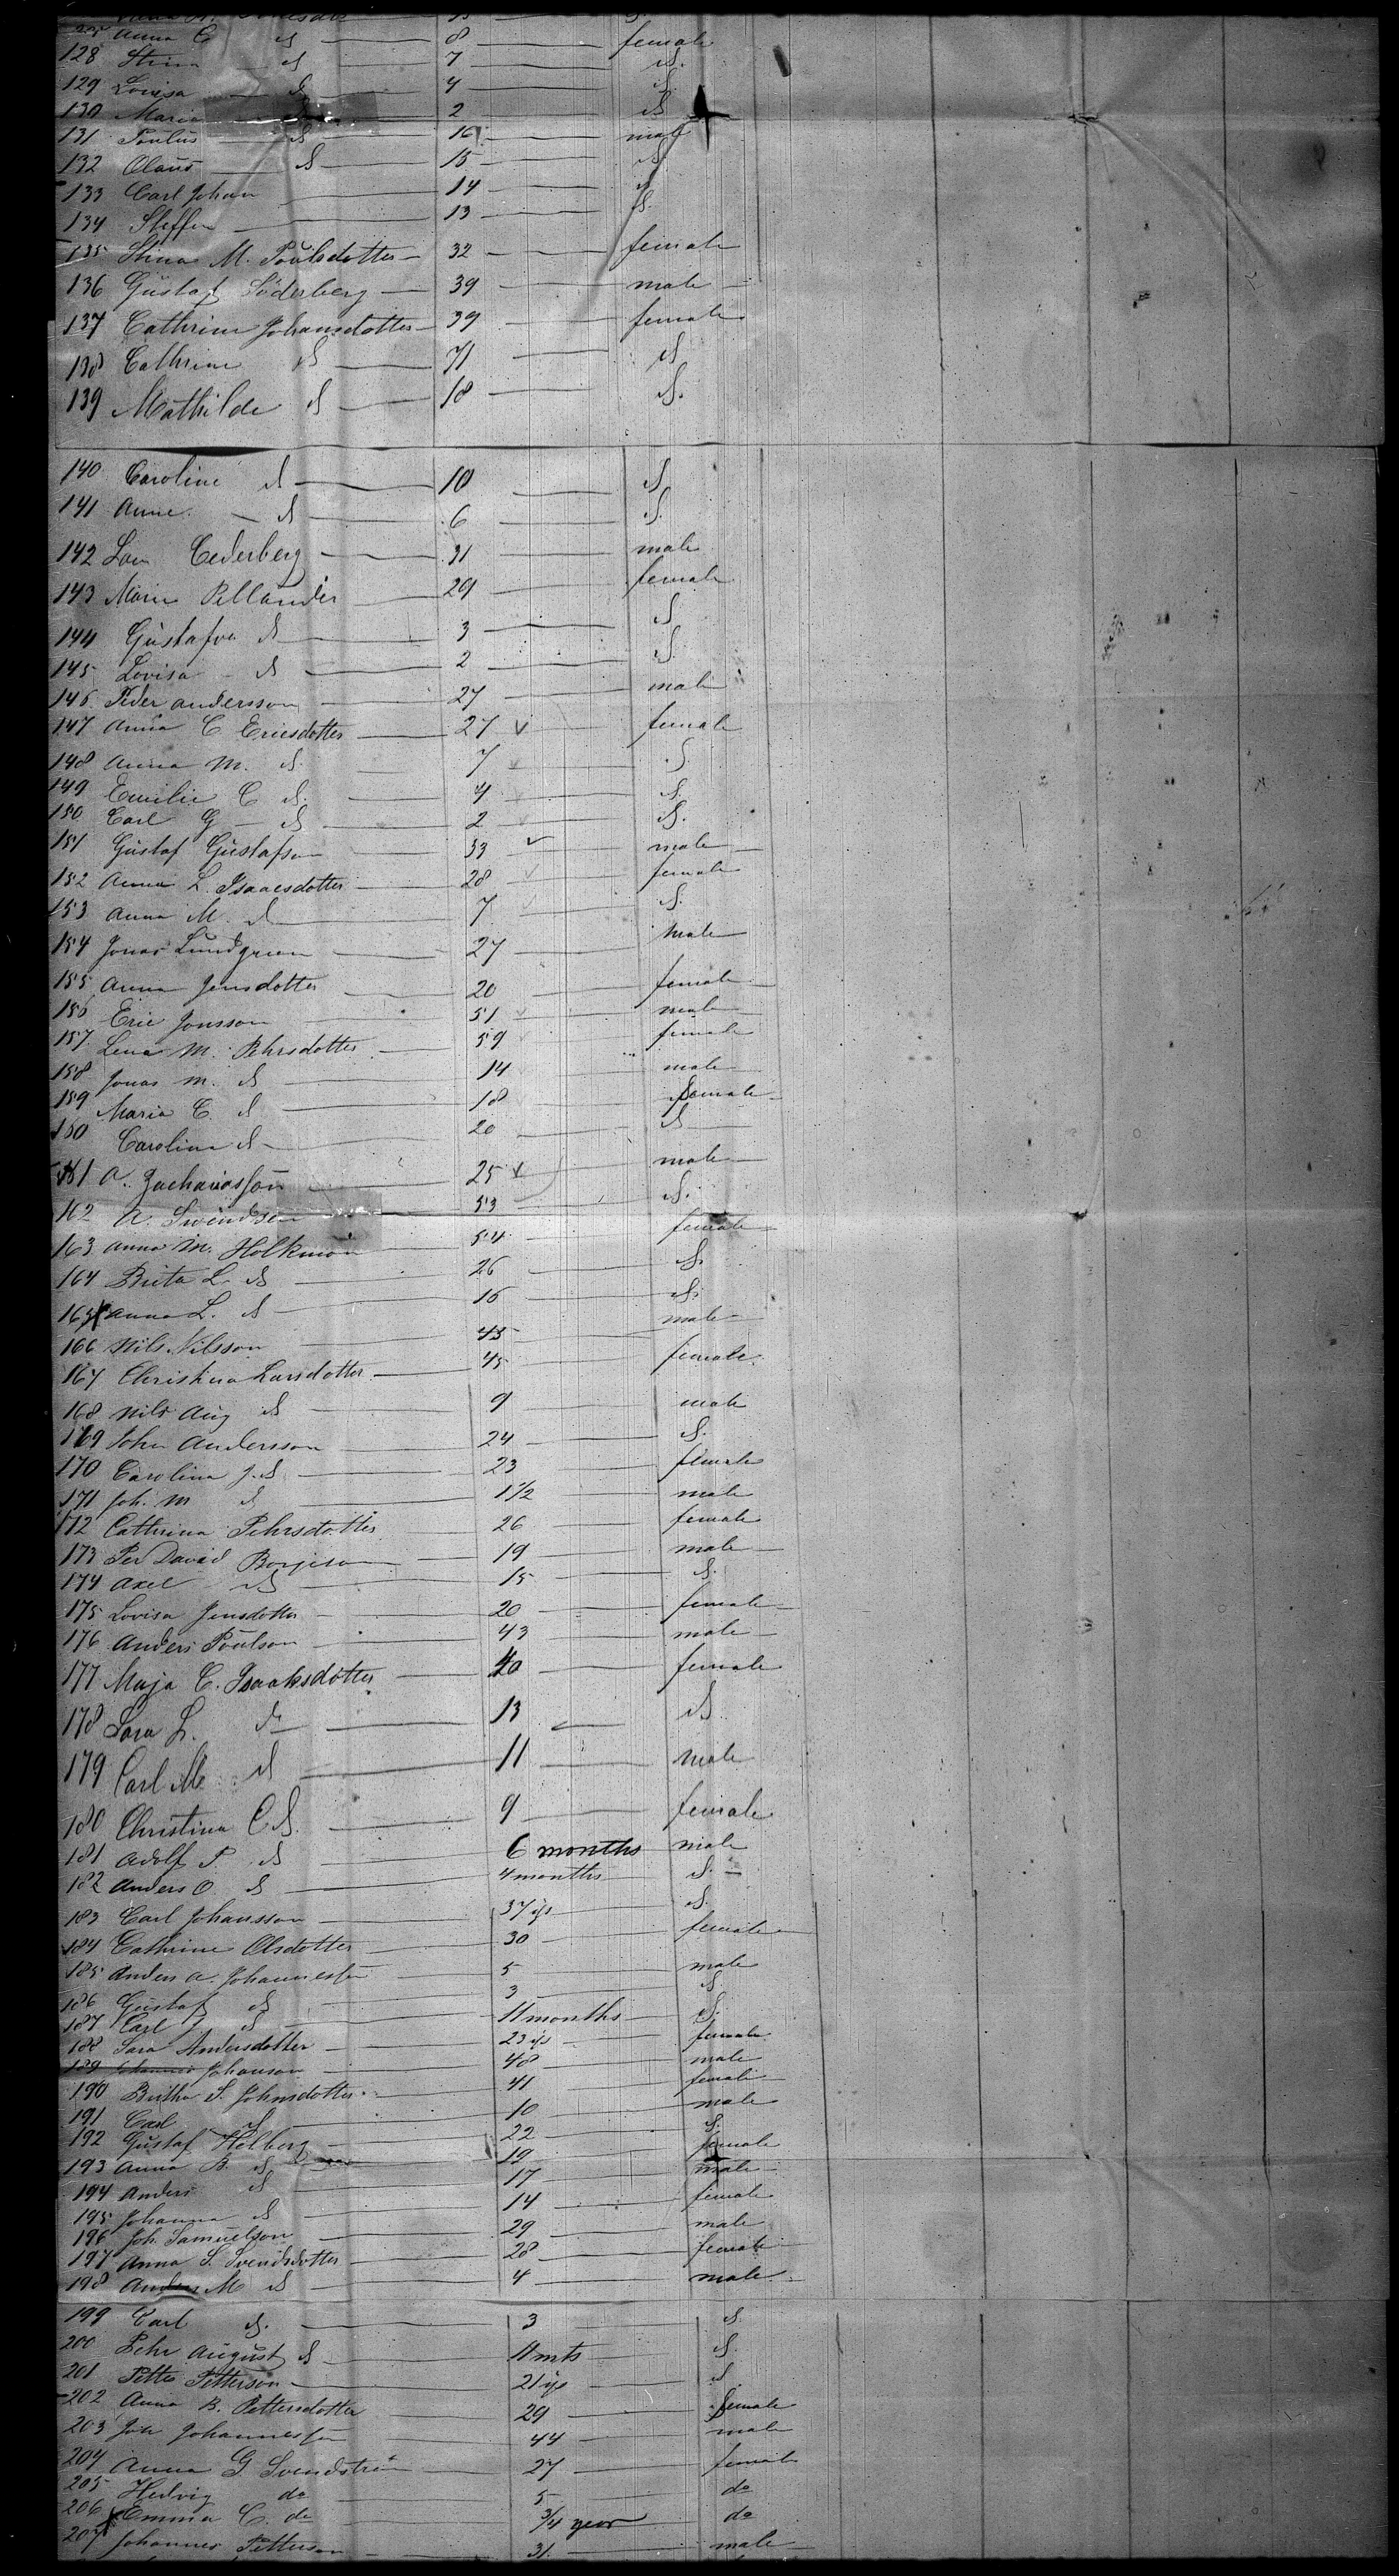 Anna C do 8 female
128 Stina do 7 do.
129 Lovisa do 4 do
130 Maria do 2 do
131 Poulus do 16 male
132 Olaus do 15 do.
133 Carl Johan 14 do
134 Steffen 13 do.
135 Stina M. Poulsdotter 32 female
136 Gustaf Söderberg 39 male
137 Cathrine Johansdotter 39 female
138 Cathrine do 71 do
139 Mathilde do 18 do.
140 Caroline do 10 do
141 Anne do 6 do.
142 Lars Cederberg 31 male
143 Maria Pellander 29 female
144 Gustafva do 3 do
145 Lovisa do 2 do.
146 Peder Andersson 27 male
147 Anna C Ericsdotter 27 female
148 Anna M. do. 7 do.
149 Emilie C do. 4 do.
150 Carl G do 2 do.
151 Gustaf Gustafson 33 male
152 Anna L. Isaacsdotter 28 female
153 Anna M. do 7 do.
154 Jonas Lundgreen 27 male
155 Anna Jensdotter 20 female
156 Eric Jonsson 51 male
157 Lena M. Pehrsdotter 59 female
158 Jonas M. do 14 male
159 Maria C. do 18 female
160 Carolina do 20 do
161 A. Zachariasson 25 male
162 A. Swendsen 53 do.
163 Anna M. Holkman 54 female
164 Brita L. do 26 do
165 Anna L. do 16 do.
166 Nils Nilsson 43 male
167 Christina Larsdotter 45 female
168 Nils Aug do 9 male
169 John Andersson 24 do.
170 Carolina J. do 23 female
171 Joh. M do 1 1/2 male
172 Cathrina Pehrsdotter 26 female
173 Per David Borjeson 19 male
174 Axel do 15 do.
175 Lovisa Jensdotter 20 female
176 Anders Poulson 43 male
177 Maja C. Isaaksdotter 40 female
178 Sara L. do 13 do.
179 Carl M do 11 male
180 Christina C do. 9 female
181 Adolf P. do 6 months male
182 Anders O. do 4 months do.
183 Carl Johansson 37 ys do.
184 Cathrine Olsdotter 30 female
185 Anders A. Johannesson 5 male
186 Gustaf do 3 do
187 Carl J do 11 months do.
188 Sara Andersdotter 23 ys female
189 Johannes Johanson 48 male
190 Britha S. Johnsdotter 41 female
191 Carl do 10 male
192 Gustaf Helberg 22 do.
193 Anna B. do 19 female
194 Anders do 17 male
195 Johanna do 14 female
196 Joh. Samuelson 29 male
197 Anna S. Svendsdotter 28 female
198 Anders M do 4 male
199 Carl do. 3 do.
200 Pehr August do 11 mts do.
201 Petter Petterson 21 ys do
202 Anna B. Pettersdotter 29 female
203 Joh Johannesson 44 male
204 Anna G. Svendström 27 female
205 Hedvig do 5 do
206 Emma C. do 3/4 year do
207 Johannes Petterson 31. male